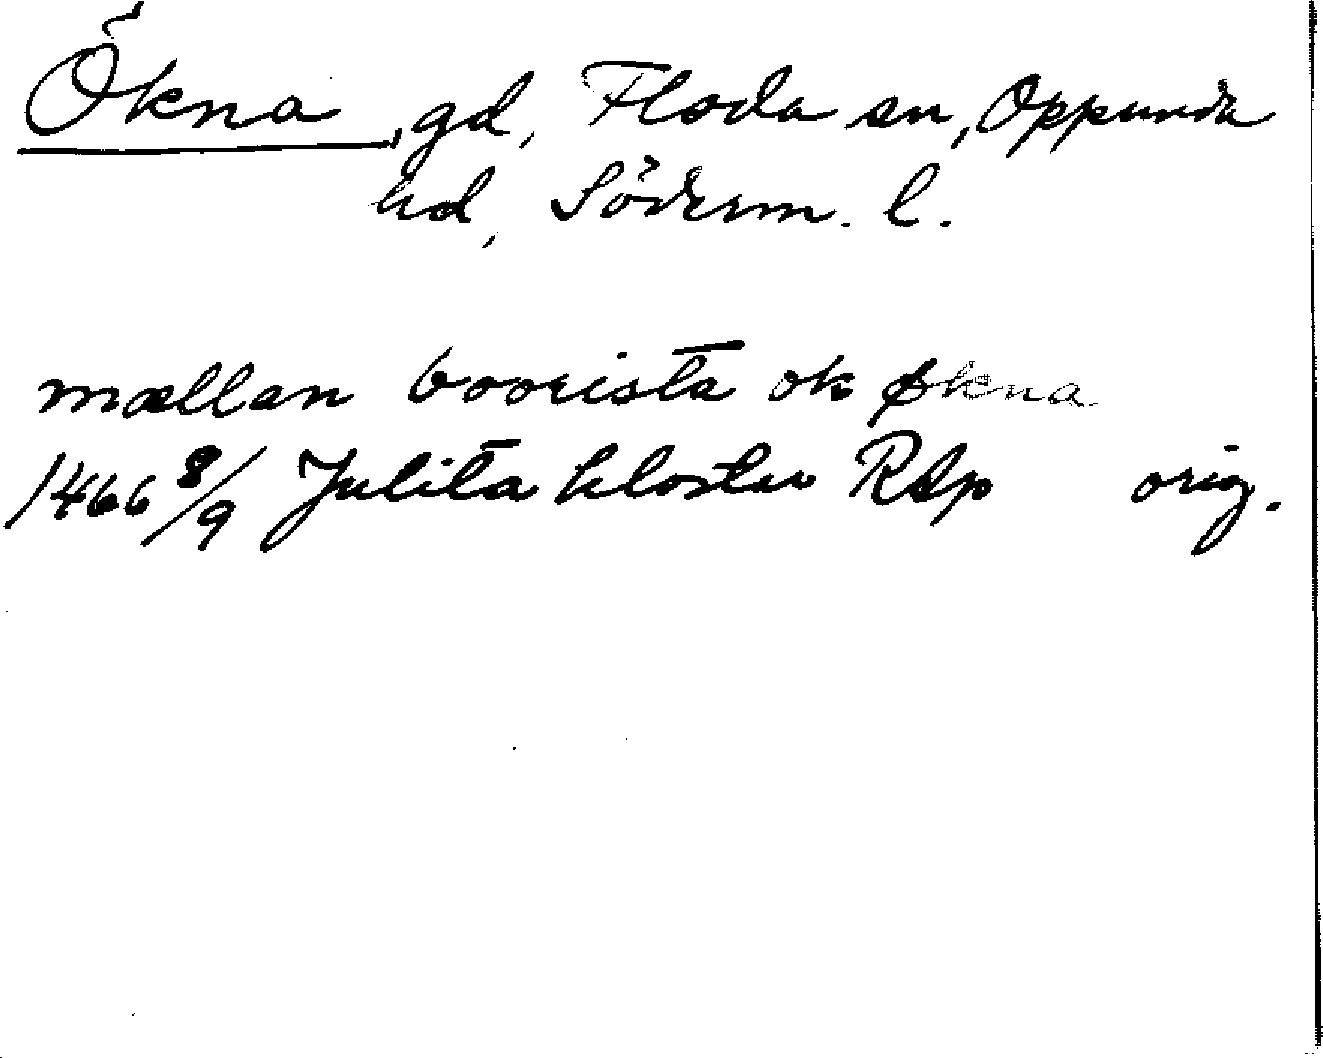 Ökna, gd, Floda sn, Oppunda
hd, Söderm. l.
mællan boorista ok økna
1466 8/9 Julita kloster RAp orig.